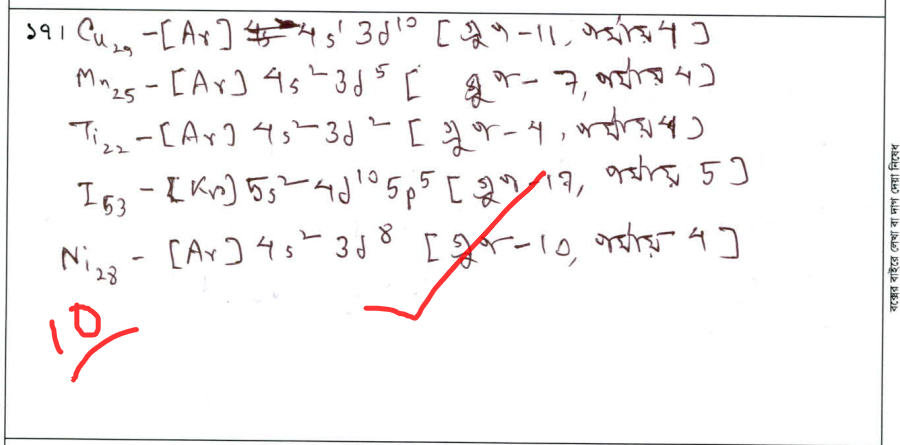 ১৭। Cu₂₉ - [Ar] 4s¹ 3d¹⁰ [গ্রুপ-11, পর্যায় 4]
Mn₂₅ - [Ar] 4s² 3d⁵ [ গ্রুপ - 7, পর্যায় 4]
Ti₂₂ - [Ar] 4s² 3d² [গ্রুপ - 4, পর্যায় 4)
I₅₃ - [Kr] 5s² 4d¹⁰ 5p⁵ [গ্রুপ -17, পর্যায় 5]
Ni₂₈ - [Ar] 4s² 3d⁸ [গ্রুপ-10, পর্যায় 4]
10
বক্সের বাইরে লেখা বা দাগ দেয়া নিষেধ